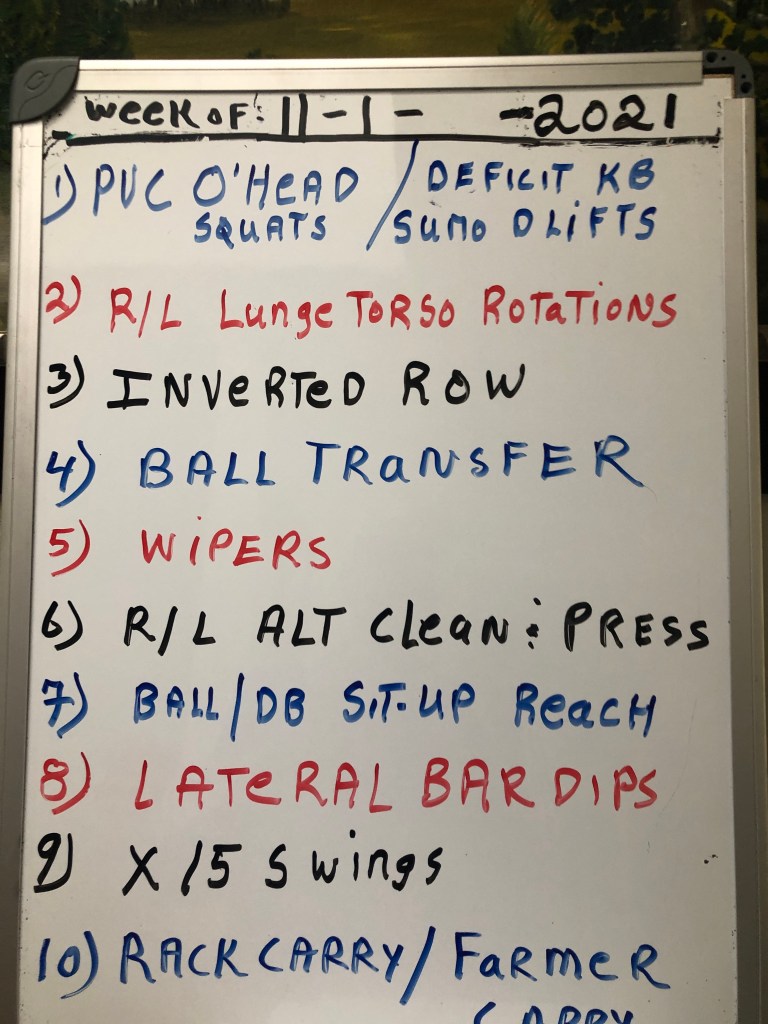 Week of: 11-1- -2021
1) PVC O'HEAD / DEFICIT KB
SQUATS / SUMO DLIFTS
2) R/L Lunge TORSO ROTATIONS
3) INVERTED ROW
4) BALL TRANSFER
5) WIPERS
6) R/L ALT Clean & PRESS
7) BALL/DB SIT-UP REACH
8) LATERAL BAR DIPS
9) X 15 Swings
10) RACK CARRY/ FARMER
CARRY